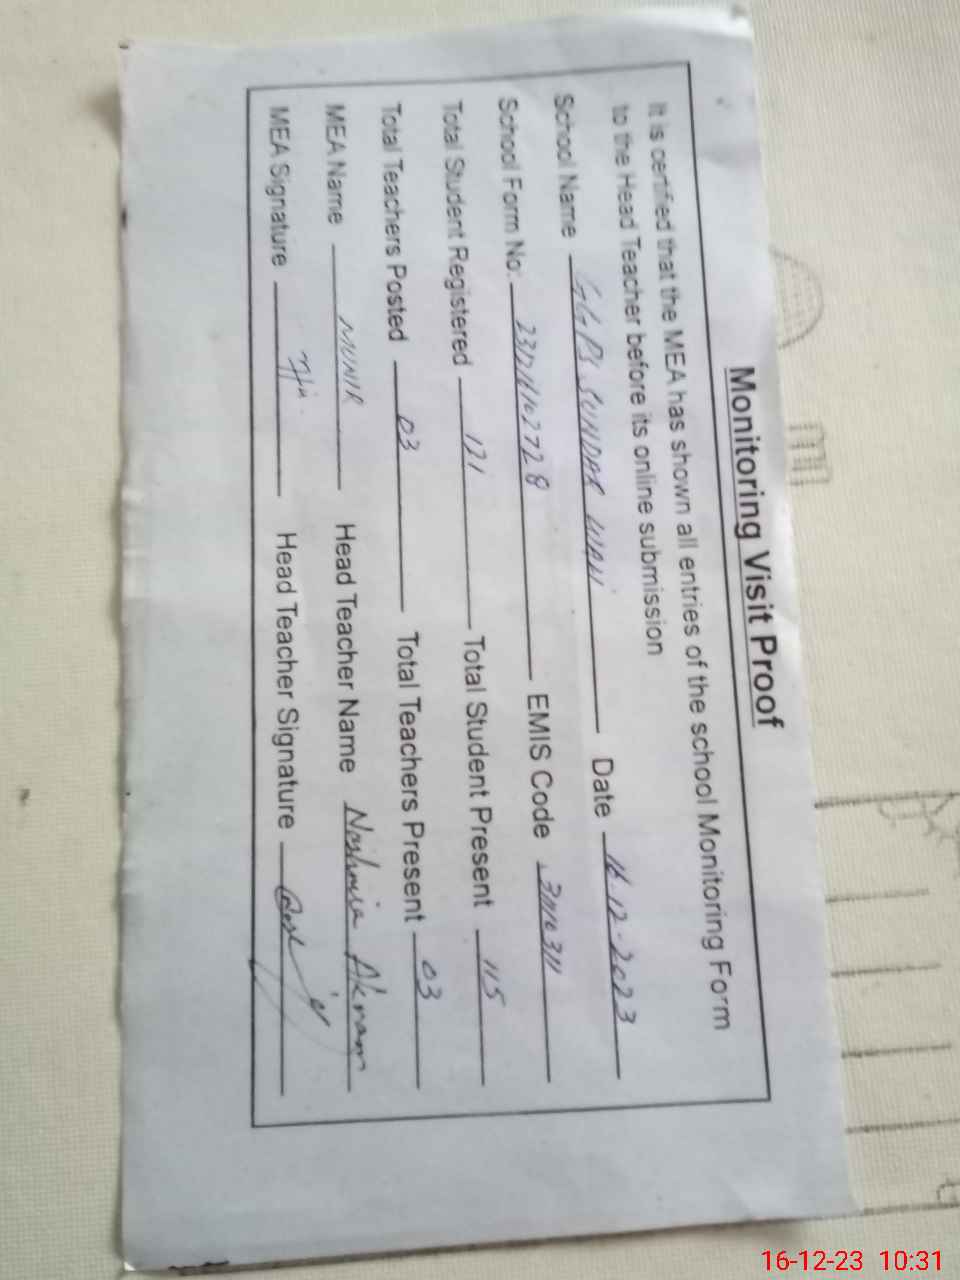 Monitoring Visit Proof
It is certified that the MEA has shown all entries of the school Monitoring Form
to the Head Teacher before its online submission
School Name GGPS SUNDAR WAN Date 16.12-2023
School Form No: EMIS Code
Total Student Registered 121 Total Student Present 115
Total Teachers Posted 03 Total Teachers Present 03
MEA Name MUNIR Head Teacher Name Noshmia Akram
MEA Signature Head Teacher Signature
16-12-23 10:31